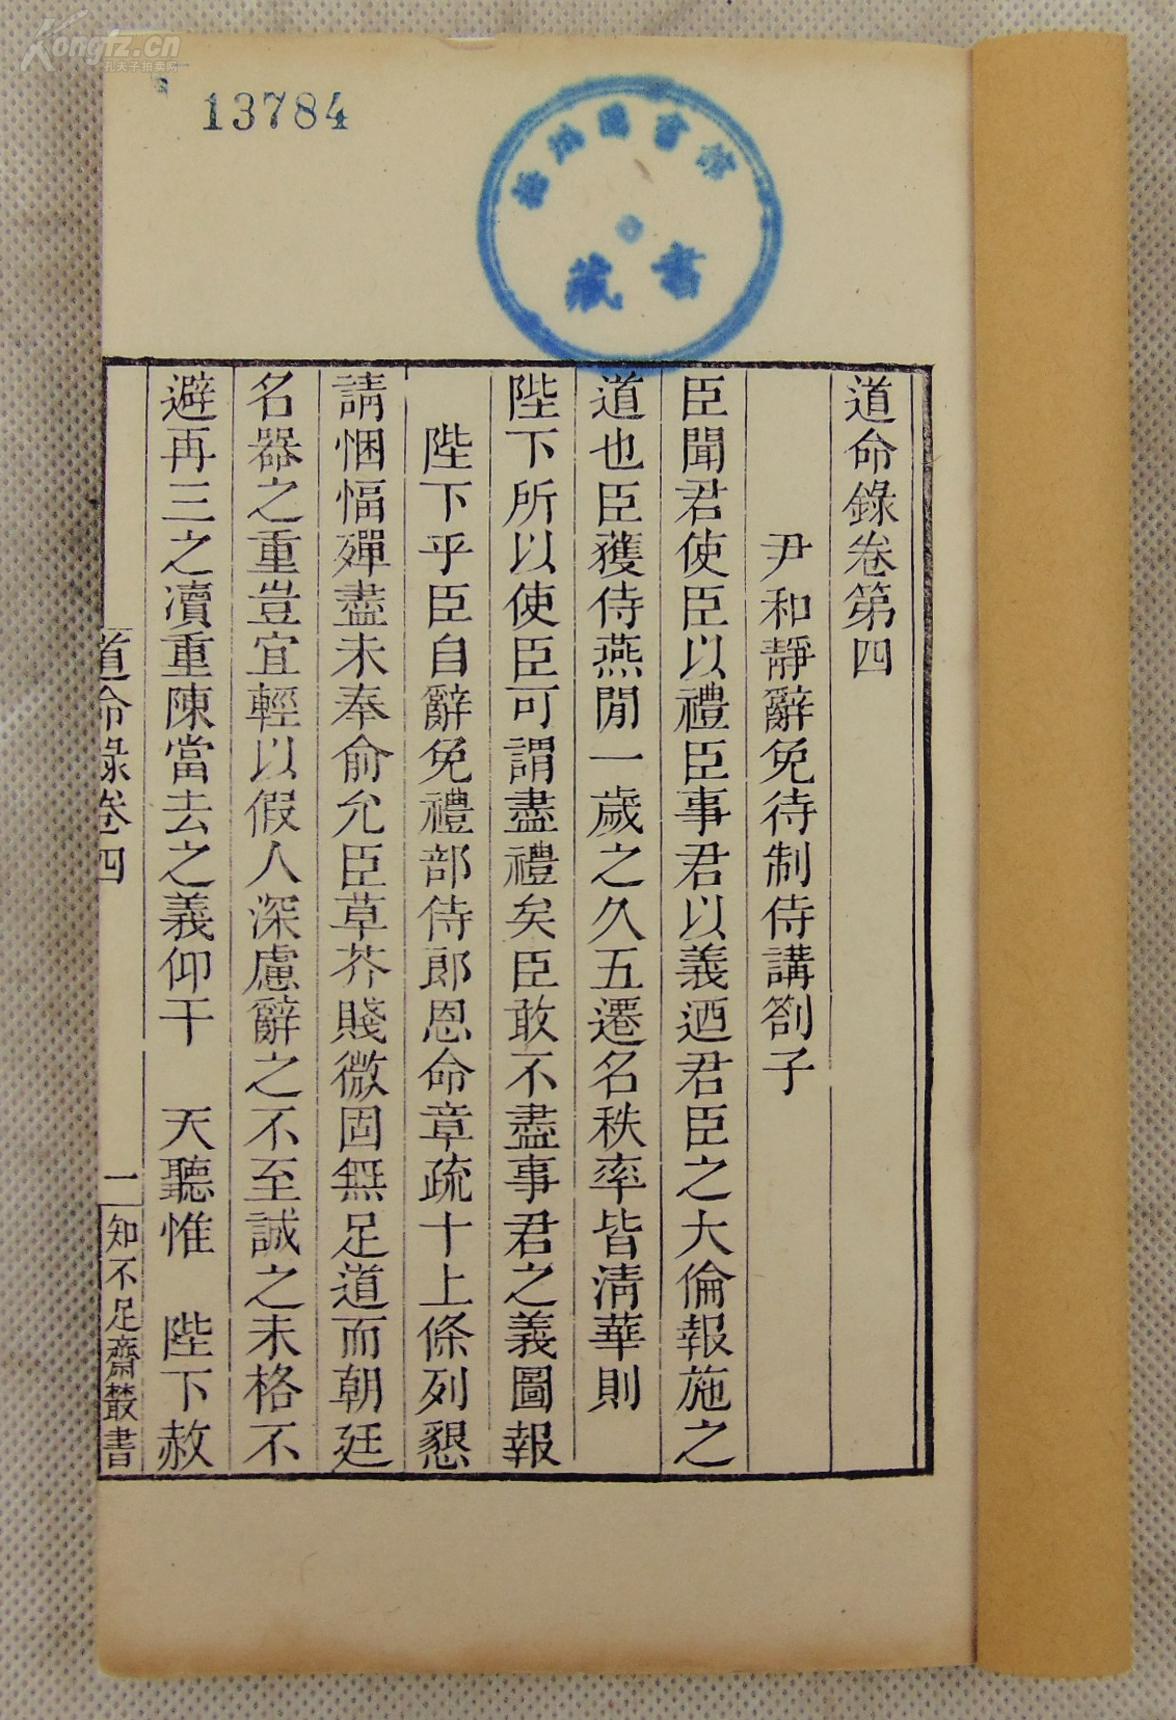 Kongfz.cn
孔夫子拍卖网
13784
書
藏
道命錄卷第四
尹和靜辭免待制侍講劄子
臣聞君使臣以禮臣事君以義迺君臣之大倫報施之
道也臣獲侍燕閒一歲之久五遷名秩率皆清華則
陛下所以使臣可謂盡禮矣臣敢不盡事君之義圖報
陛下乎臣自辭免禮部侍郎恩命章疏十上條列懇
請悃愊殫盡未奉俞允臣草芥賤微固無足道而朝廷
名器之重豈宜輕以假人深慮辭之不至誠之未格不
避再三之瀆重陳當去之義仰干　天聽惟　陛下赦
道命錄卷四
一
知不足齋叢書